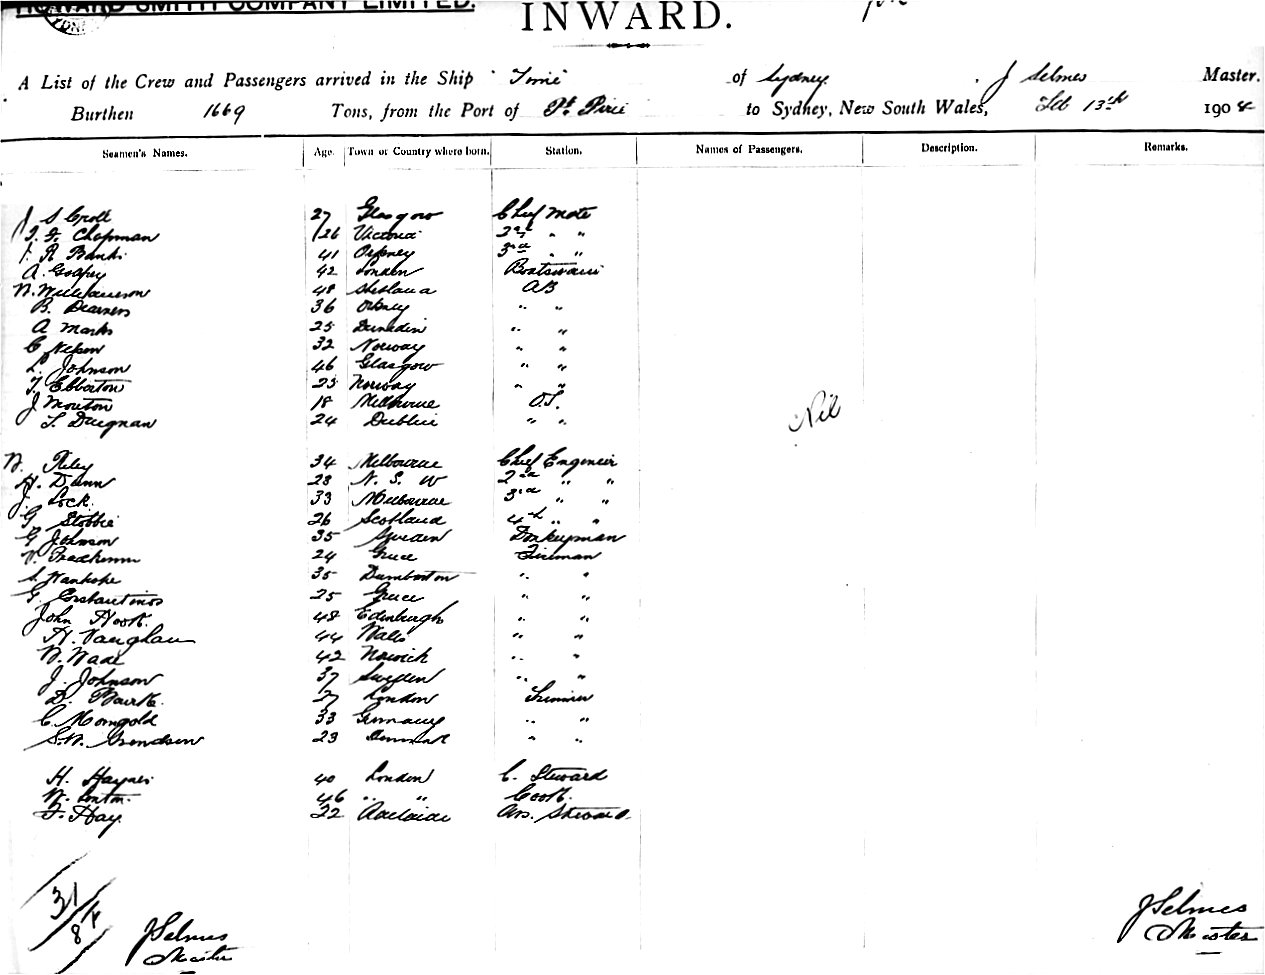 HOWARD SMITH COMPANY LIMITED.
INWARD.
A List of the Crew and Passengers arrived in the Ship of Sydney J Selmes Master.
Burthen 1669 Tons, from the Port of Pt. Pirie to Sydney, New South Wales, Feb 13th 1908
Seamen's Names. Age. Town or Country where born. Station. Names of Passengers. Description. Remarks.
J S Croll 27 Glasgow Chief Mate
Chapman 26 Victoria 2nd " "
R Banks 41 Orkney 3rd " "
A. Godfrey 42 London Boatswain
W. Williamson 48 Shetland AB
B. 36 Orkney " "
A Marks 25 Dunedin " "
C Nelson 32 Norway " "
L. Johnson 46 Glasgow " "
T. Ebberton 23 Norway " "
J Mouton 18 Melbourne O.S.
T. Duignan 24 Dublin " "
Nil
W. Riley 34 Melbourne Chief Engineer
H. Dunn 28 N. S. W 2nd " "
J. Lock. 33 Melbourne 3rd " "
G. Stobbie 26 Scotland 4th " "
G Johnson 35 Sweden Donkeyman
V. 24 Greece Fireman
35 Dumbarton " "
G. Constantinos 25 Greece " "
John Hook. 48 Edinburgh " "
H. Vaughan 44 Wales " "
W. Wade 42 Norwich " "
J. Johnson 37 Sweden " "
D. Bourke. 27 London Trimmer
C. Morngold 33 Germany " "
S.W. 23 Denmark " "
H. Haynes 40 London C. Steward
W. 46 " " Cook.
F. Hay. 22 Adelaide Ass. Steward
31
8
J Selmes
Master
J Selmes
Master